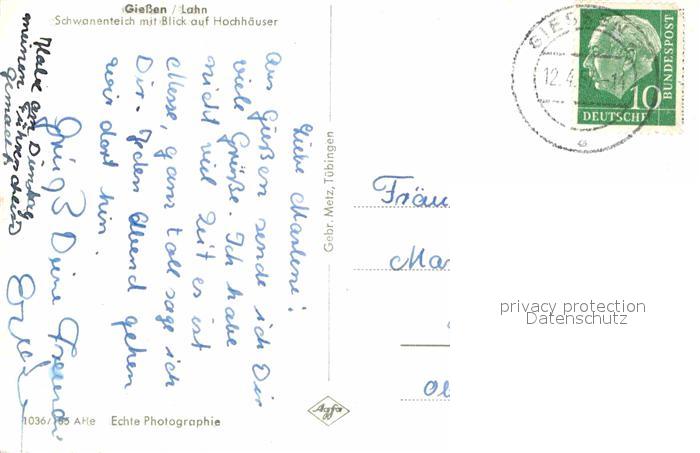 Gießen / Lahn
Schwanenteich mit Blick auf Hochhäuser
Liebe Marlene!
Aus Gießen sende ich Dir
viele Grüße. Ich habe
nicht viel Zeit es ist
Messe, ganz toll sage ich
Dir. Jeden Abend gehen
wir dort hin.
Grüß Deine Freundin
Habe am Dienstag
meinen Führerschein
gemacht
Gebr. Metz, Tübingen
1036/ 85 AHe Echte Photographie
Agfa
GIESSEN
12.4.5
BUNDESPOST
10
DEUTSCHE
Fräu
Mar
Ob
privacy protection
Datenschutz